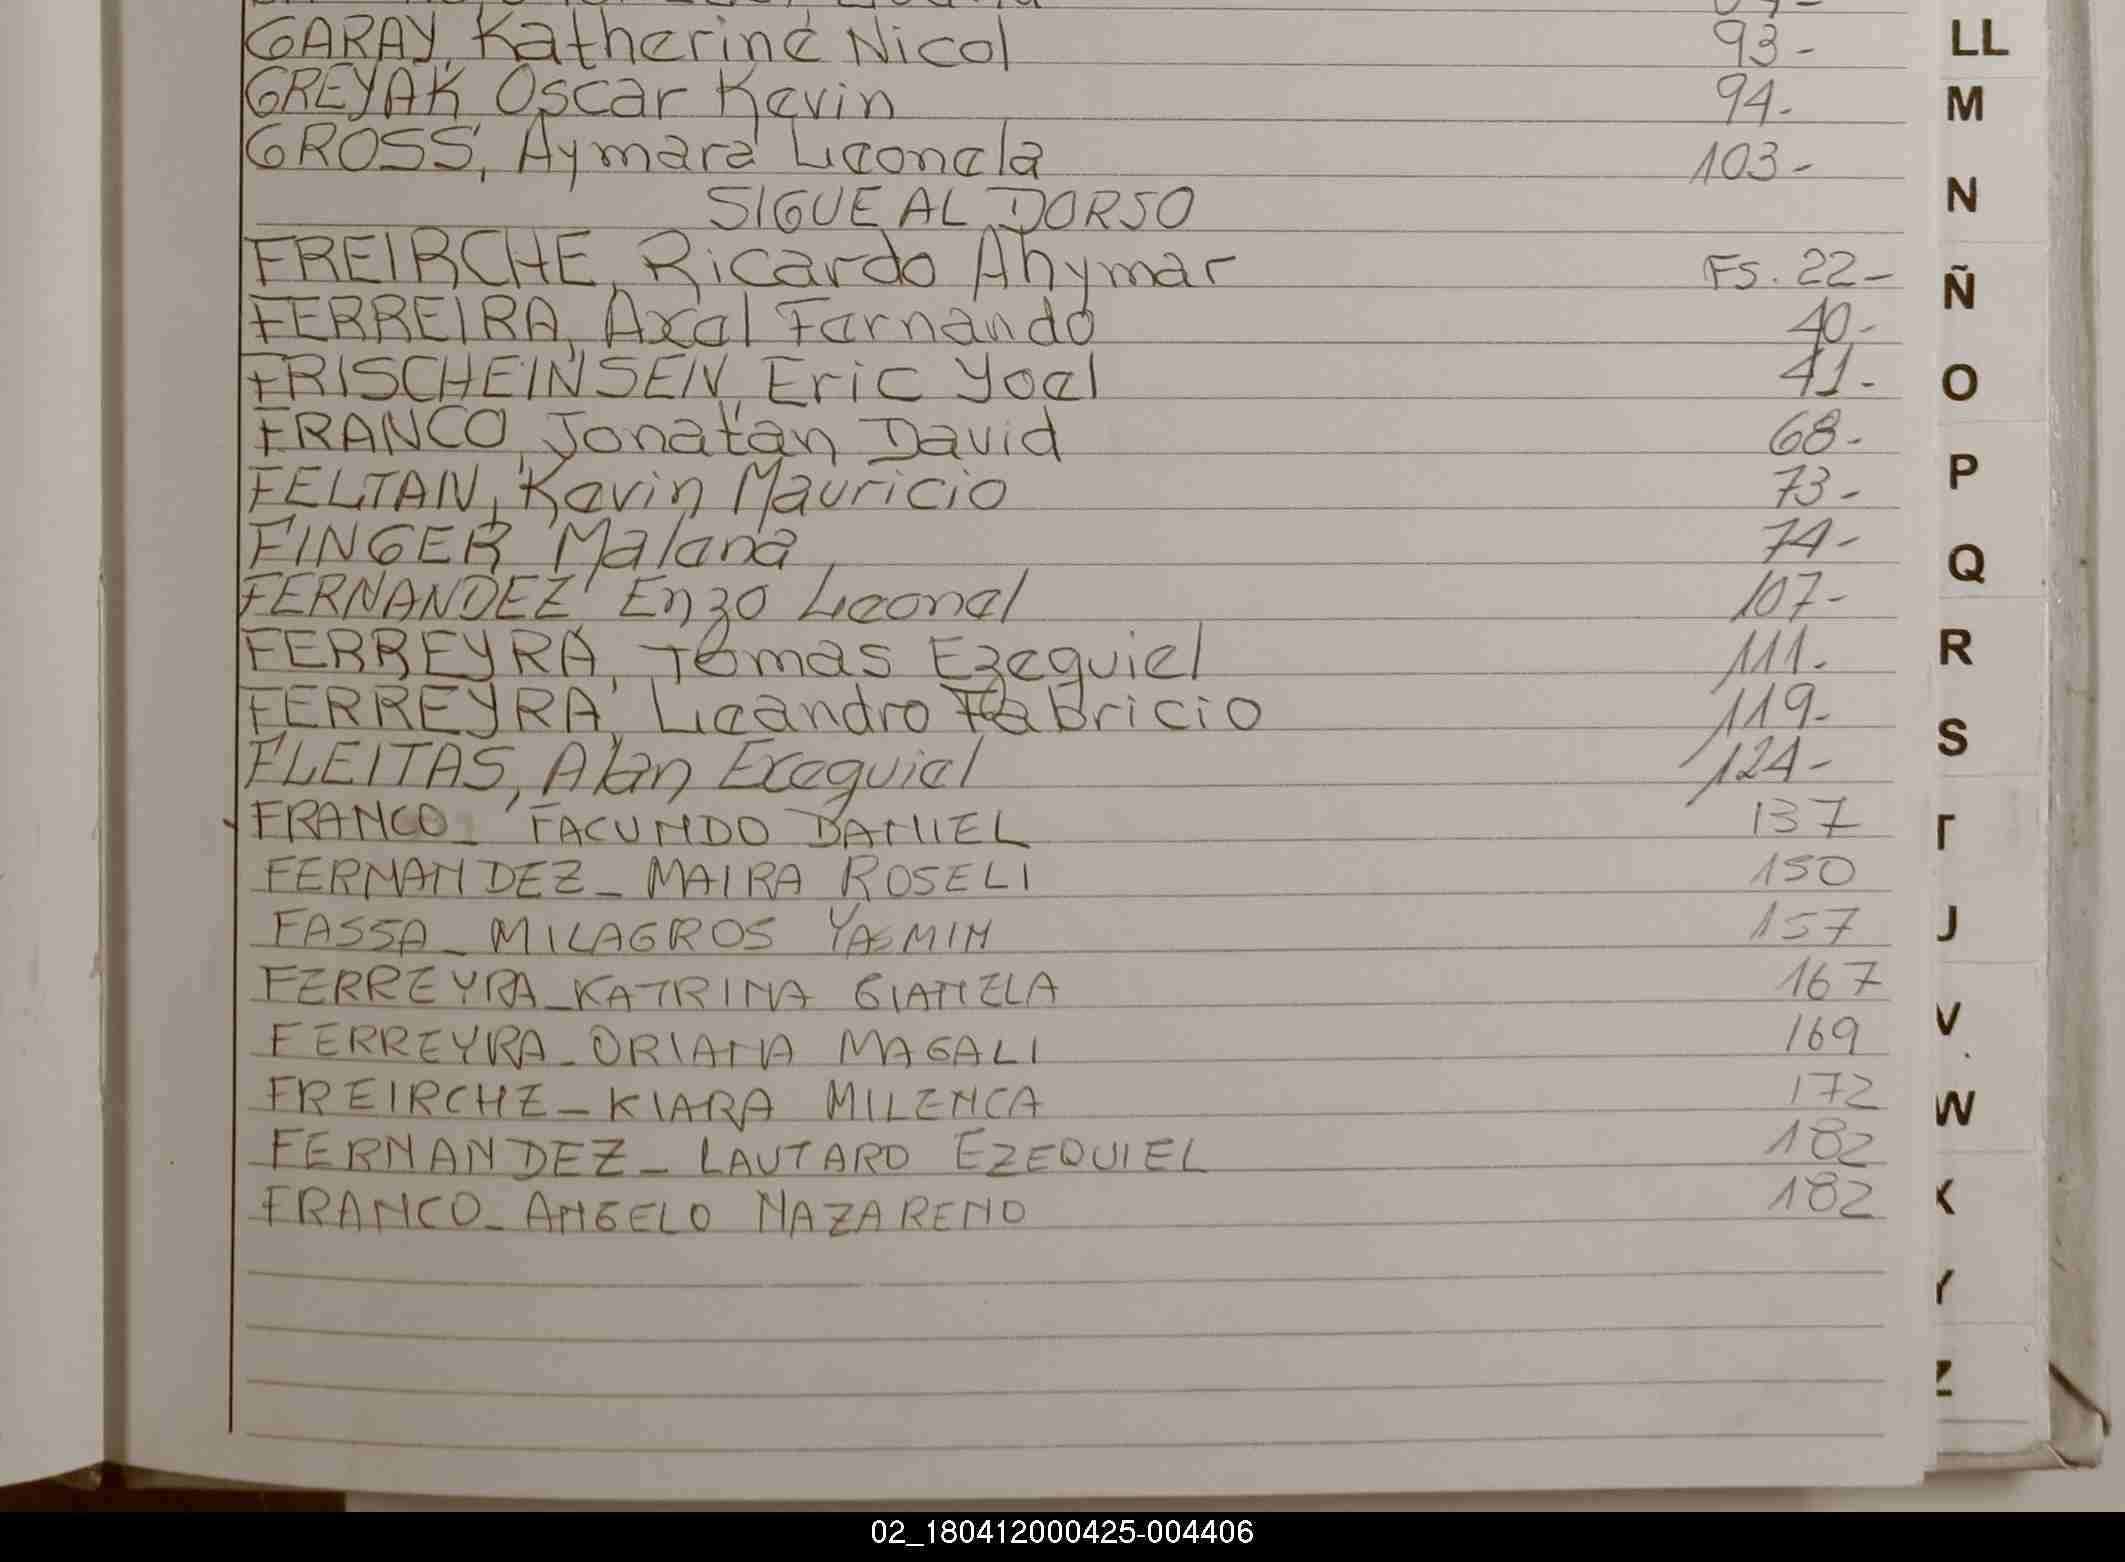 GARAY, Katherine Nicol 93-
GREYAK Oscar Kevin 94-
GROSS, Aymara Leonela 103-
SIGUE AL DORSO
FREIRCHE, Ricardo Ahymar Fs. 22-
FERREIRA, Axel Fernando 40-
FRISCHEINSEN, Eric Yoel 41-
FRANCO, Jonatan David 68-
FELTAN, Kevin Mauricio 73-
FINGER Malena 74-
FERNANDEZ Enzo Leonel 107-
FERREYRA, Tomas Ezequiel 111-
FERREYRA, Leandro Fabricio 119-
FLEITAS, Alan Exequiel 124-
FRANCO_ FACUNDO DANIEL 137
FERNANDEZ_ MAIRA ROSELI 150
FASSA_ MILAGROS YASMIN 157
FERREYRA_KATRINA GIANELA 167
FERREYRA_ORIANA MAGALI 169
FREIRCHE_KIARA MILENCA 172
FERNANDEZ_ LAUTARO EZEQUIEL 182
FRANCO_ANGELO NAZARENO 182
LL
M
N
Ñ
O
P
Q
R
S
T
J
V
W
X
Y
Z
02_180412000425-004406